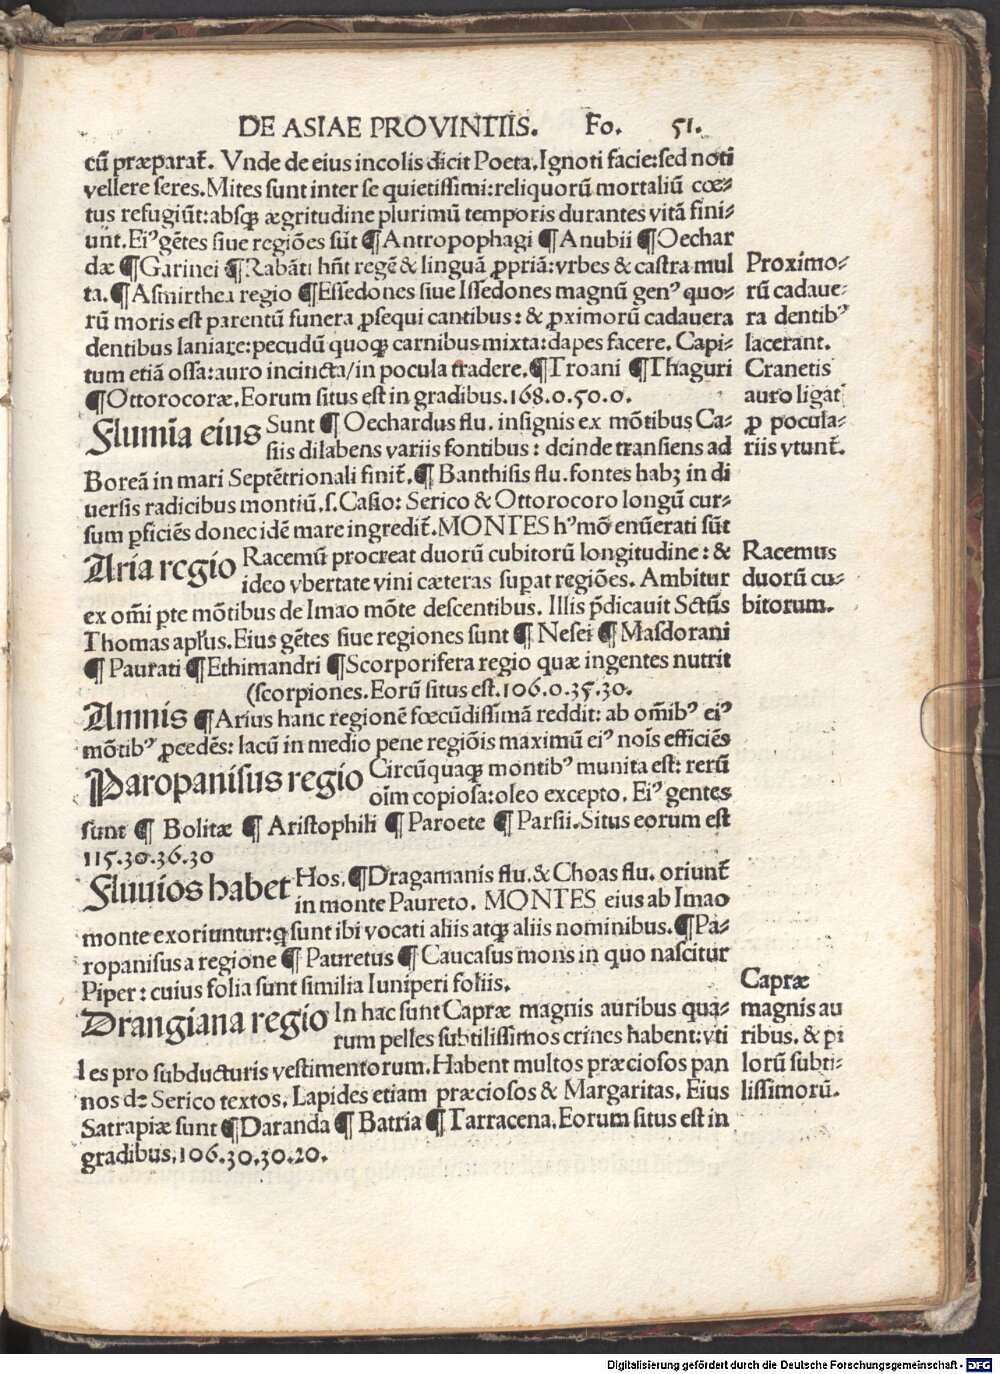 DE ASIAE PROVINTIIS. Fo. 51.
cū præparat᷑. Vnde de eius incolis dicit Poeta, Ignoti facie: sed noti
vellere seres. Mites sunt inter se quietissimi: reliquorū mortaliū cœ-
tus refugiūt: absqꝫ ægritudine plurimū temporis durantes vitā fini-
unt. Eiꝰ gētes siue regiōes sūt ¶ Antropophagi ¶ Anubii ¶ Oechar
dæ ¶ Garinei ¶ Rabāti hn̄t regē & linguā ꝓpriā: vrbes & castra mul
ta. ¶ Asmirthea regio ¶ Essedones siue Issedones magnū genꝰ quo-
rū moris est parentū funera ꝓsequi cantibus: & ꝓximorū cadauera
dentibus laniare: pecudū quoqꝫ carnibus mixta: dapes facere. Capi-
tum etiā ossa: auro incincta/in pocula tradere. ¶ Troani ¶ Thaguri
¶ Ottorocoræ. Eorum situs est in gradibus. 168. 0. 50. 0.
Proximo-
rū cadaue-
ra dentibꝰ
lacerant.
Cranetis
auro ligat
ꝓ pocula-
riis vtunt᷑.
Flumīa eius Sunt ¶ Oechardus flu. insignis ex mōtibus Ca-
siis dilabens variis fontibus: deinde transiens ad
Boreā in mari Septētrionali finit᷑. ¶ Banthisis flu. fontes habꝫ in di
uersis radicibus montiū. s. Casio: Serico & Ottorocoro longū cur-
sum ꝑficiēs donec idē mare ingredit᷑. MONTES hꝰmō enūerati sūt
Aria regio Racemū procreat duorū cubitorū longitudine: &
ideo vbertate vini cæteras suꝑat regiōes. Ambitur
ex om̄i ꝑte mōtibus de Imao mōte descentibus. Illis p̄dicauit Sctūs
Thomas apl'us. Eius gētes siue regiones sunt ¶ Nesei ¶ Masdorani
¶ Paurati ¶ Ethimandri ¶ Scorporifera regio quæ ingentes nutrit
(scorpiones. Eorū situs est. 106. 0. 35. 30.
Racemus
duorū cu-
bitorum.
Amnis ¶ Arius hanc regionē fœcūdissimā reddit: ab om̄ibꝰ eiꝰ
mōtibꝰ ꝓcedēs: lacū in medio pene regiōis maximū eiꝰ nōis efficiēs
Paropanisus regio Circūquaqꝫ montibꝰ munita est: rerū
oīm copiosa: oleo excepto. Eiꝰ gentes
sunt ¶ Bolitæ ¶ Aristophili ¶ Paroete ¶ Parsii. Situs eorum est
115. 30. 36. 30
Fluuios habet Hos. ¶ Dragamanis flu. & Choas flu. oriunt᷑
in monte Paureto. MONTES eius ab Imao
monte exoriuntur: q̨ sunt ibi vocati aliis atqꝫ aliis nominibus. ¶ Pa-
ropanisus a regione ¶ Pauretus ¶ Caucasus mons in quo nascitur
Piper: cuius folia sunt similia Iuniperi foliis.
Drangiana regio In hac sunt Capræ magnis auribus qua-
rum pelles subtilissimos crines habent: vti
les pro subducturis vestimentorum. Habent multos præciosos pan
nos de Serico textos. Lapides etiam præciosos & Margaritas. Eius
Satrapiæ sunt ¶ Daranda ¶ Batria ¶ Tarracena. Eorum situs est in
gradibus. 106. 30. 30. 20.
Capræ
magnis au
ribus. & pi
lorū subti-
lissimorū.
Digitalisierung gefördert durch die Deutsche Forschungsgemeinschaft - DFG